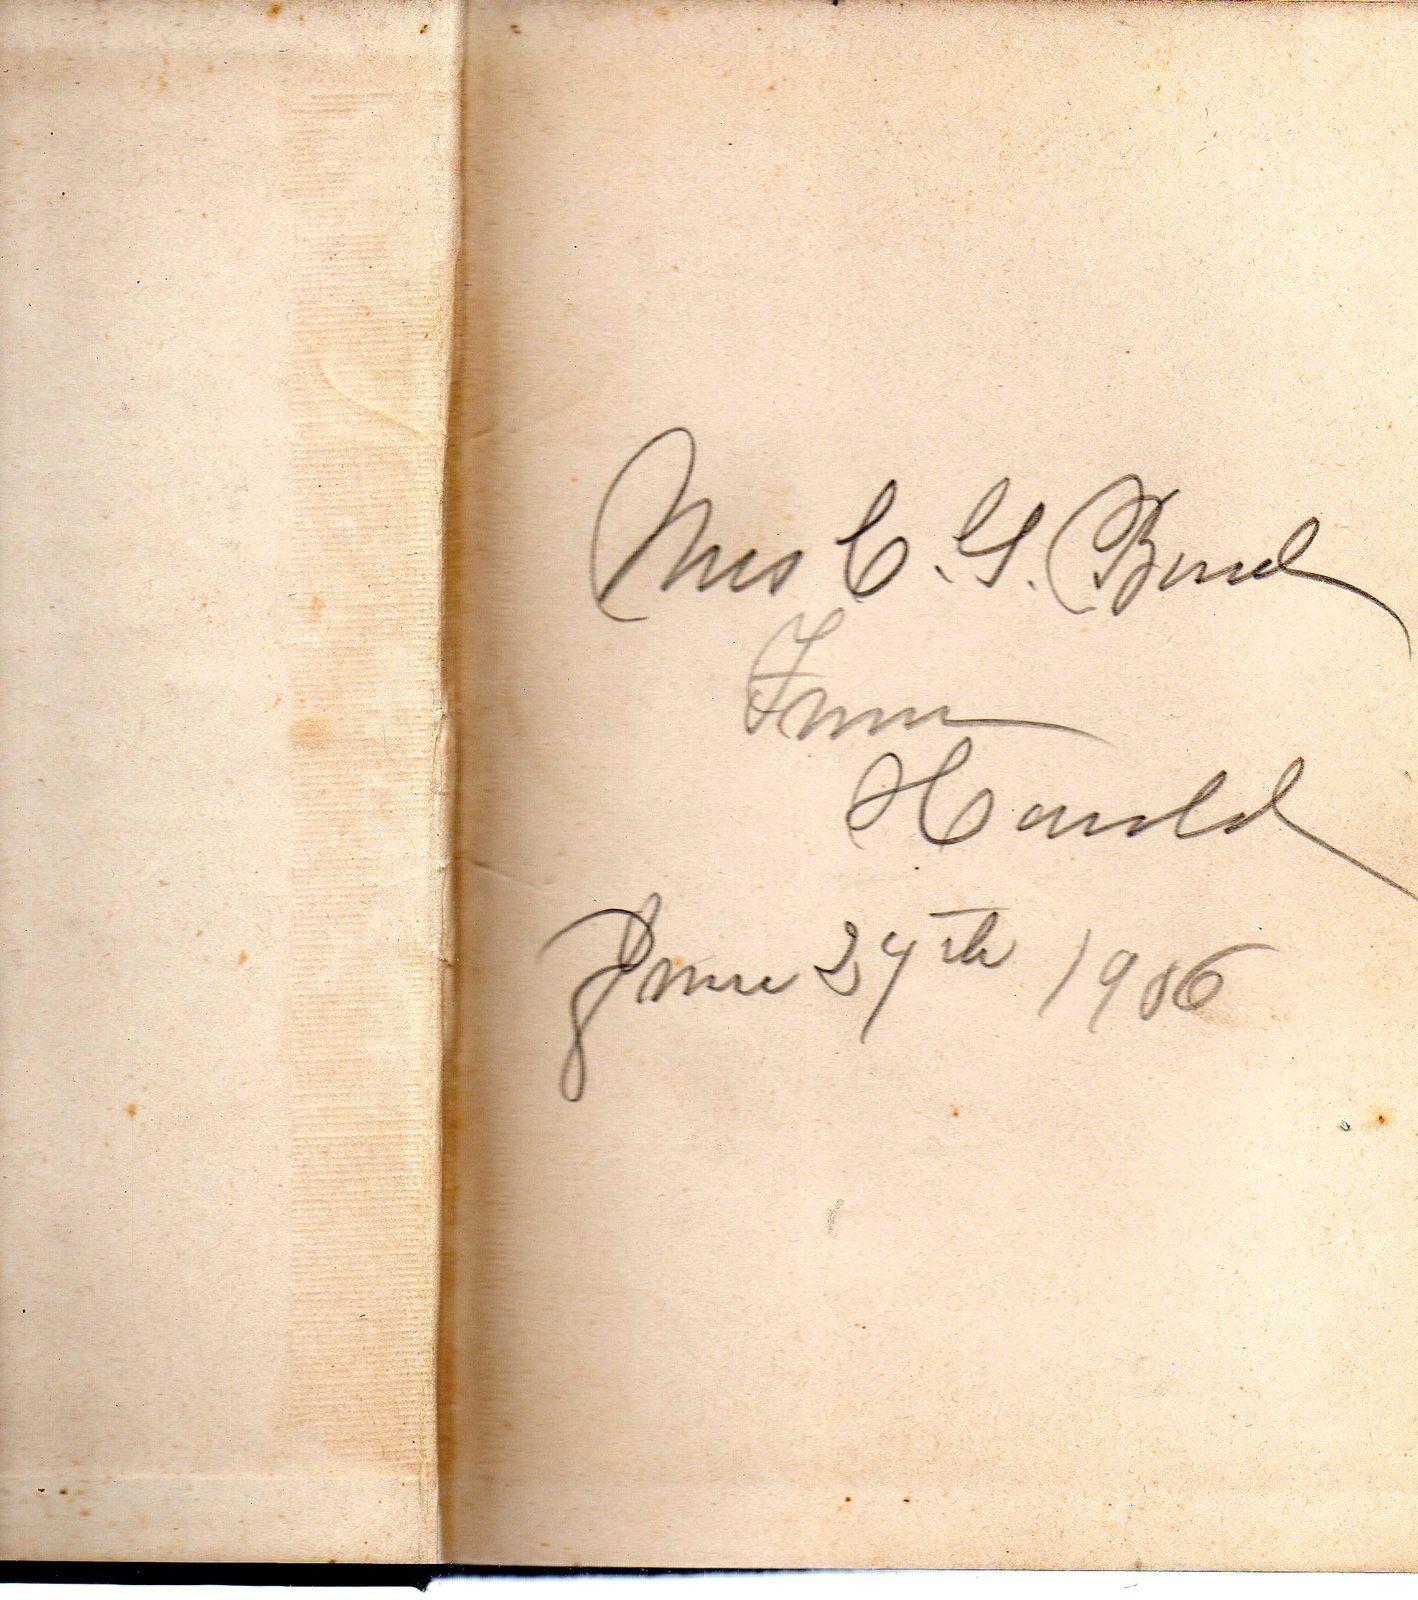 Mrs C. G.
From
Harold
June 24th 1906